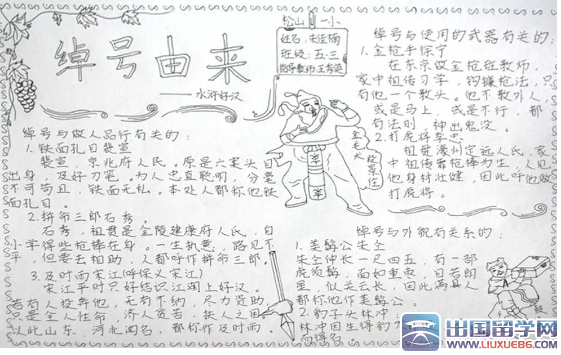 绰号由来
——水浒好汉
松山 一小
姓名:朱佳楠
班级:五·三
指导教师:王秀英
绰号与做人品行有关的:
1.铁面孔目裴宣
裴宣,京兆府人氏。原是六案孔目
出身,及好刀笔。为人忠直聪明,分毫
不可苟且,铁面无私。本处人都称他铁
面孔目。
2.拼命三郎石秀。
石秀,祖贯是金陵建康府人氏,自
小学得些枪棒在身。一生执意,路见不
平,但要去相助,人都呼作拼命三郎。
3.及时雨宋江(呼保义宋江)
宋江平时只好结识江湖上好汉。
若有人投奔他,无有不纳,尽力资助,
只是全人性命,济人贫苦,扶人之困
以此山东、河北闻名,都称作及时雨。
金毛犬
段景住
绰号与使用的武器有关的:
1.金枪手徐宁
在东京做金枪班教师,
家中祖传习学,钩镰枪法,只
有他一个教头。他不教外人,
或是马上,或是不行,都
有法则,神出鬼没。
2.打虎将李忠
祖贯濠州定远人氏,家
中祖传靠枪棒为生,人见
他身材壮健,因此呼他做
打虎将。
绰号与外貌有关系的:
1.美髯公朱仝
朱仝仲长一尺四五,有一部
虎须髯,面如重枣,目若朗
星,似关云长,因此满县人
都称他作美髯公。
2.豹子头林冲:
林冲因生得豹
而得名。
出国留学网
WWW.LIUXUE86.COM